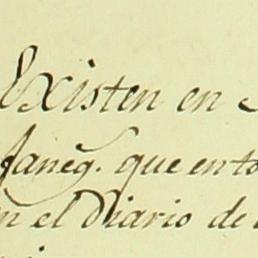 Existen en
faneg. que en to
n el Diario de